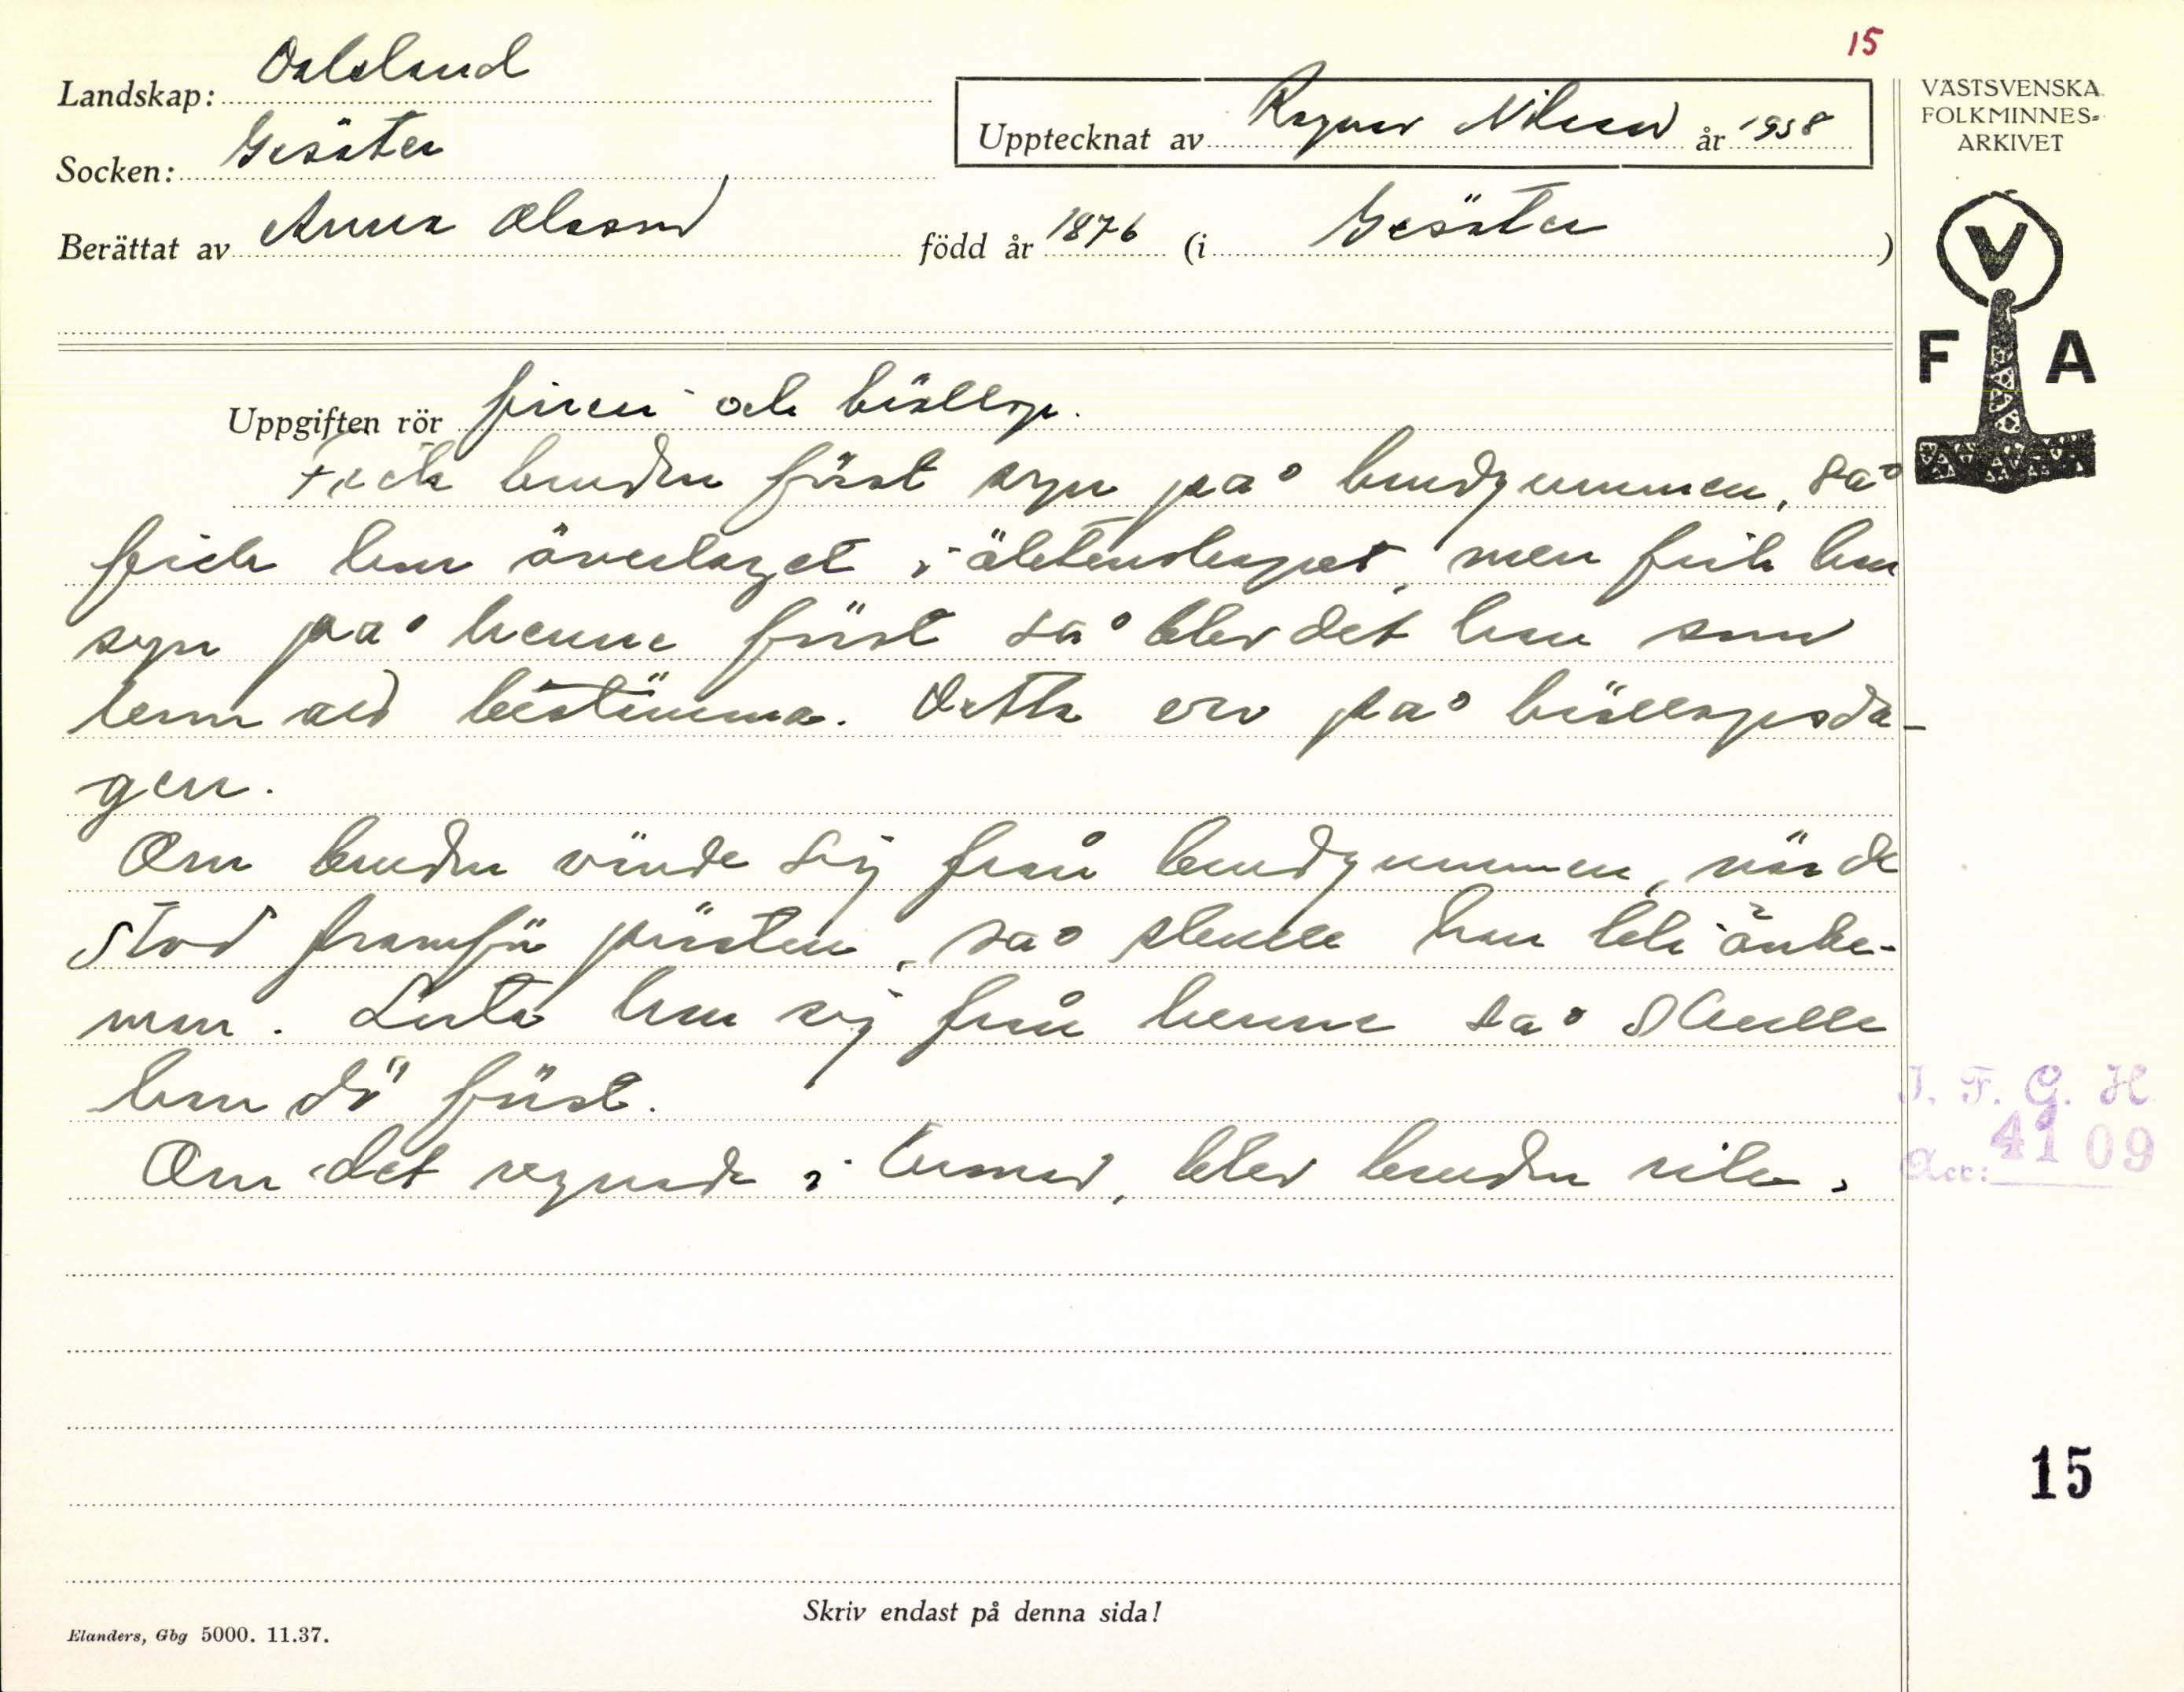 15
Landskap: Dalsland
Upptecknat av Ragnar Nilsson år 1938
Socken: Gesäter
Berättat av Anna Olsson född år 1876 (i Gesäter)
VÄSTSVENSKA
FOLKMINNES=
ARKIVET
V
F A
Uppgiften rör frieri och bröllop.
Fick bruden först syn på brudgummen, så
fick hon övertaget i äktenskapet, men fick han
syn på henne först så blev det han som
kom att bestämma. Detta var på bröllopsda-
gen.
Om bruden vände sig från brudgummen, när de
stod framför prästen, så skulle han bli änke-
man. Luta han sig från henne så skulle
han dö först.
Om det regnade i kronan, blev bruden rik.
I. F. G. H
Acc: 4109
15
Skriv endast på denna sida!
Elanders, Gbg 5000. 11.37.